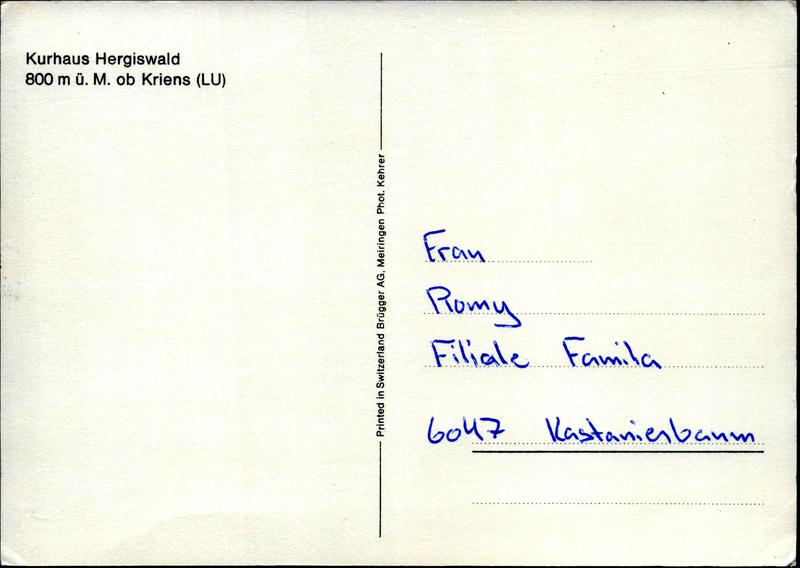 Kurhaus Hergiswald
800 m ü. M. ob Kriens (LU)
Printed in Switzerland Brügger AG, Meiringen Phot. Kehrer
Frau
Romy
Filiale Famila
6047 Kastanienbaum